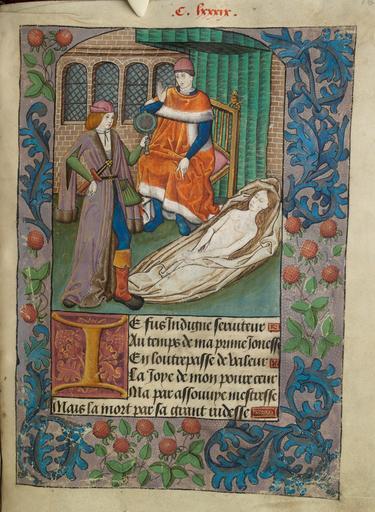 C. lxxxix.
Ie fus Indigne seruiteur
Au temps de ma prime Ionesse
En loutrepasse de valeur
La Ioye de mon poure cueur
Ma par assouuye mestresse
Mais la mort par sa grant rudesse